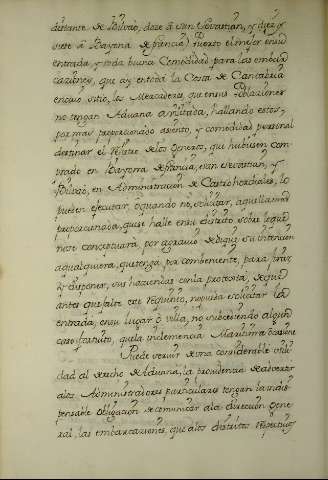 distante de Bilvao, doze á san Sevastian, y diez y
siete á Bayona de francia; Puerto el mejor en su
entrada, y toda buena Comodidad para las embar
caziones, que ay en toda la Costa de Cantabria
en cuio sitio, los Mercaderes, que en sus Poblaziones
no tengan Aduana havilitada, hallando estos, y
por mas proporcionado asiento, y comodidad personal
destinar el de los Generos, que hubiesen com
prado en Bayona de francia, en san Sevastian, y
Bilvao, en Administracion de Castro hordiales, lo
pueden ejecutar, ó quando no, solicitar, aquella mas
proporcionada, que se halle en su distrito sobre lo que
no se conceptuará, por agravio de que su intencion
a qualquiera, que tenga por combeniente, para traer
y disponer, sus haziendas con la protesta, de que
antes que falte este requisito, no pueda solicitar la
entrada, en su lugar ó villa, no subcediendo algun
caso fortuito, que la inclemencia Maritima
Puede servir de una considerable utili
dad al derecho de Aduana, la providencia de advertir
a los Administradores particulares tengan la indis
pensable obligacion de comunicar a la direccion Gene
ral, las embarcaziones, que a los distritos respectivos